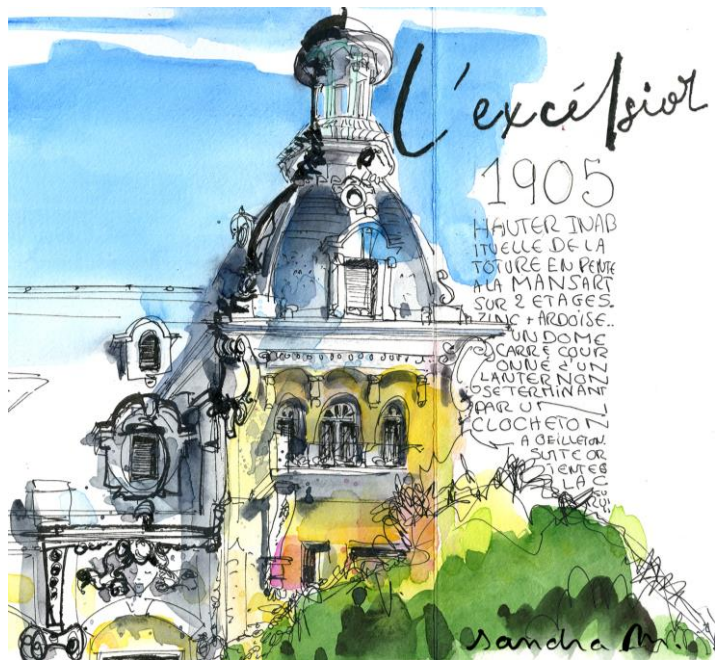 L'excélsior
1905
HAUTER INAB
ITUELLE DE LA
TOTURE EN PENTE
A LA MANSART
SUR 2 ETAGES.
ZINC + ARDOISE..
UN DOME
CARRE COUR
ONNE d'UN
LANTERNON
SETERMINANT
PAR UN
CLOCHETON
A OEILLETON.
SUITE OR
IENTEE
LA C
sandra M.